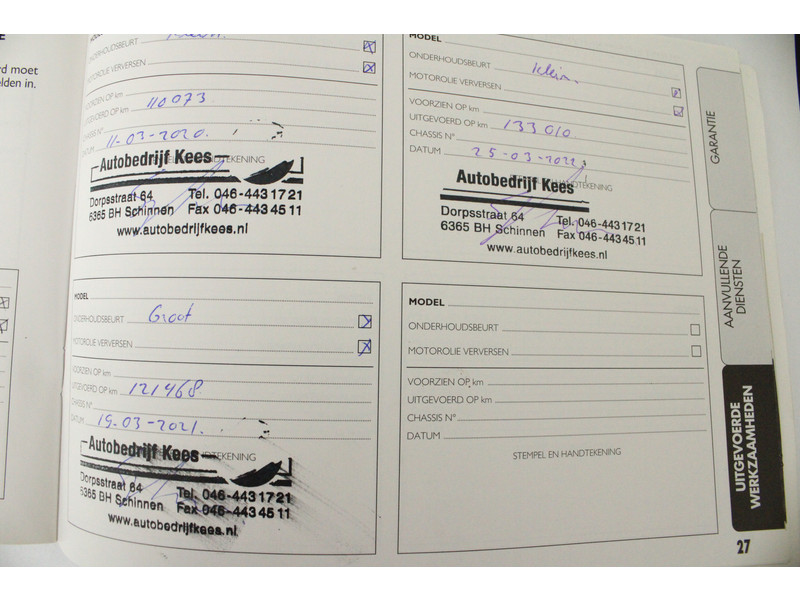 E
rd moet
elden in.
ONDERHOUDSBEURT Klein.
MOTOROLIE VERVERSEN
VOORZIEN OP km
UITGEVOERD OP km 110073
CHASSIS N°
DATUM 11-03-2020.
Autobedrijf Kees
Dorpsstraat 64 Tel. 046-4431721
6365 BH Schinnen Fax 046-4434511
www.autobedrijfkees.nl
MODEL
ONDERHOUDSBEURT Groot
MOTOROLIE VERVERSEN
VOORZIEN OP km
UITGEVOERD OP km 121468
CHASSIS N°
DATUM 19-03-2021.
Autobedrijf Kees
Dorpsstraat 64 Tel. 046-4431721
6365 BH Schinnen Fax 046-4434511
www.autobedrijfkees.nl
MODEL
ONDERHOUDSBEURT Klein.
MOTOROLIE VERVERSEN
VOORZIEN OP km
UITGEVOERD OP km 133010
CHASSIS N°
DATUM 25-03-2022
HANDTEKENING
Autobedrijf Kees
Dorpsstraat 64 Tel. 046-4431721
6365 BH Schinnen Fax 046-4434511
www.autobedrijfkees.nl
MODEL
ONDERHOUDSBEURT
MOTOROLIE VERVERSEN
VOORZIEN OP km
UITGEVOERD OP km
CHASSIS N°
DATUM
STEMPEL EN HANDTEKENING
GARANTIE
AANVULLENDE
DIENSTEN
UITGEVOERDE
WERKZAAMHEDEN
27